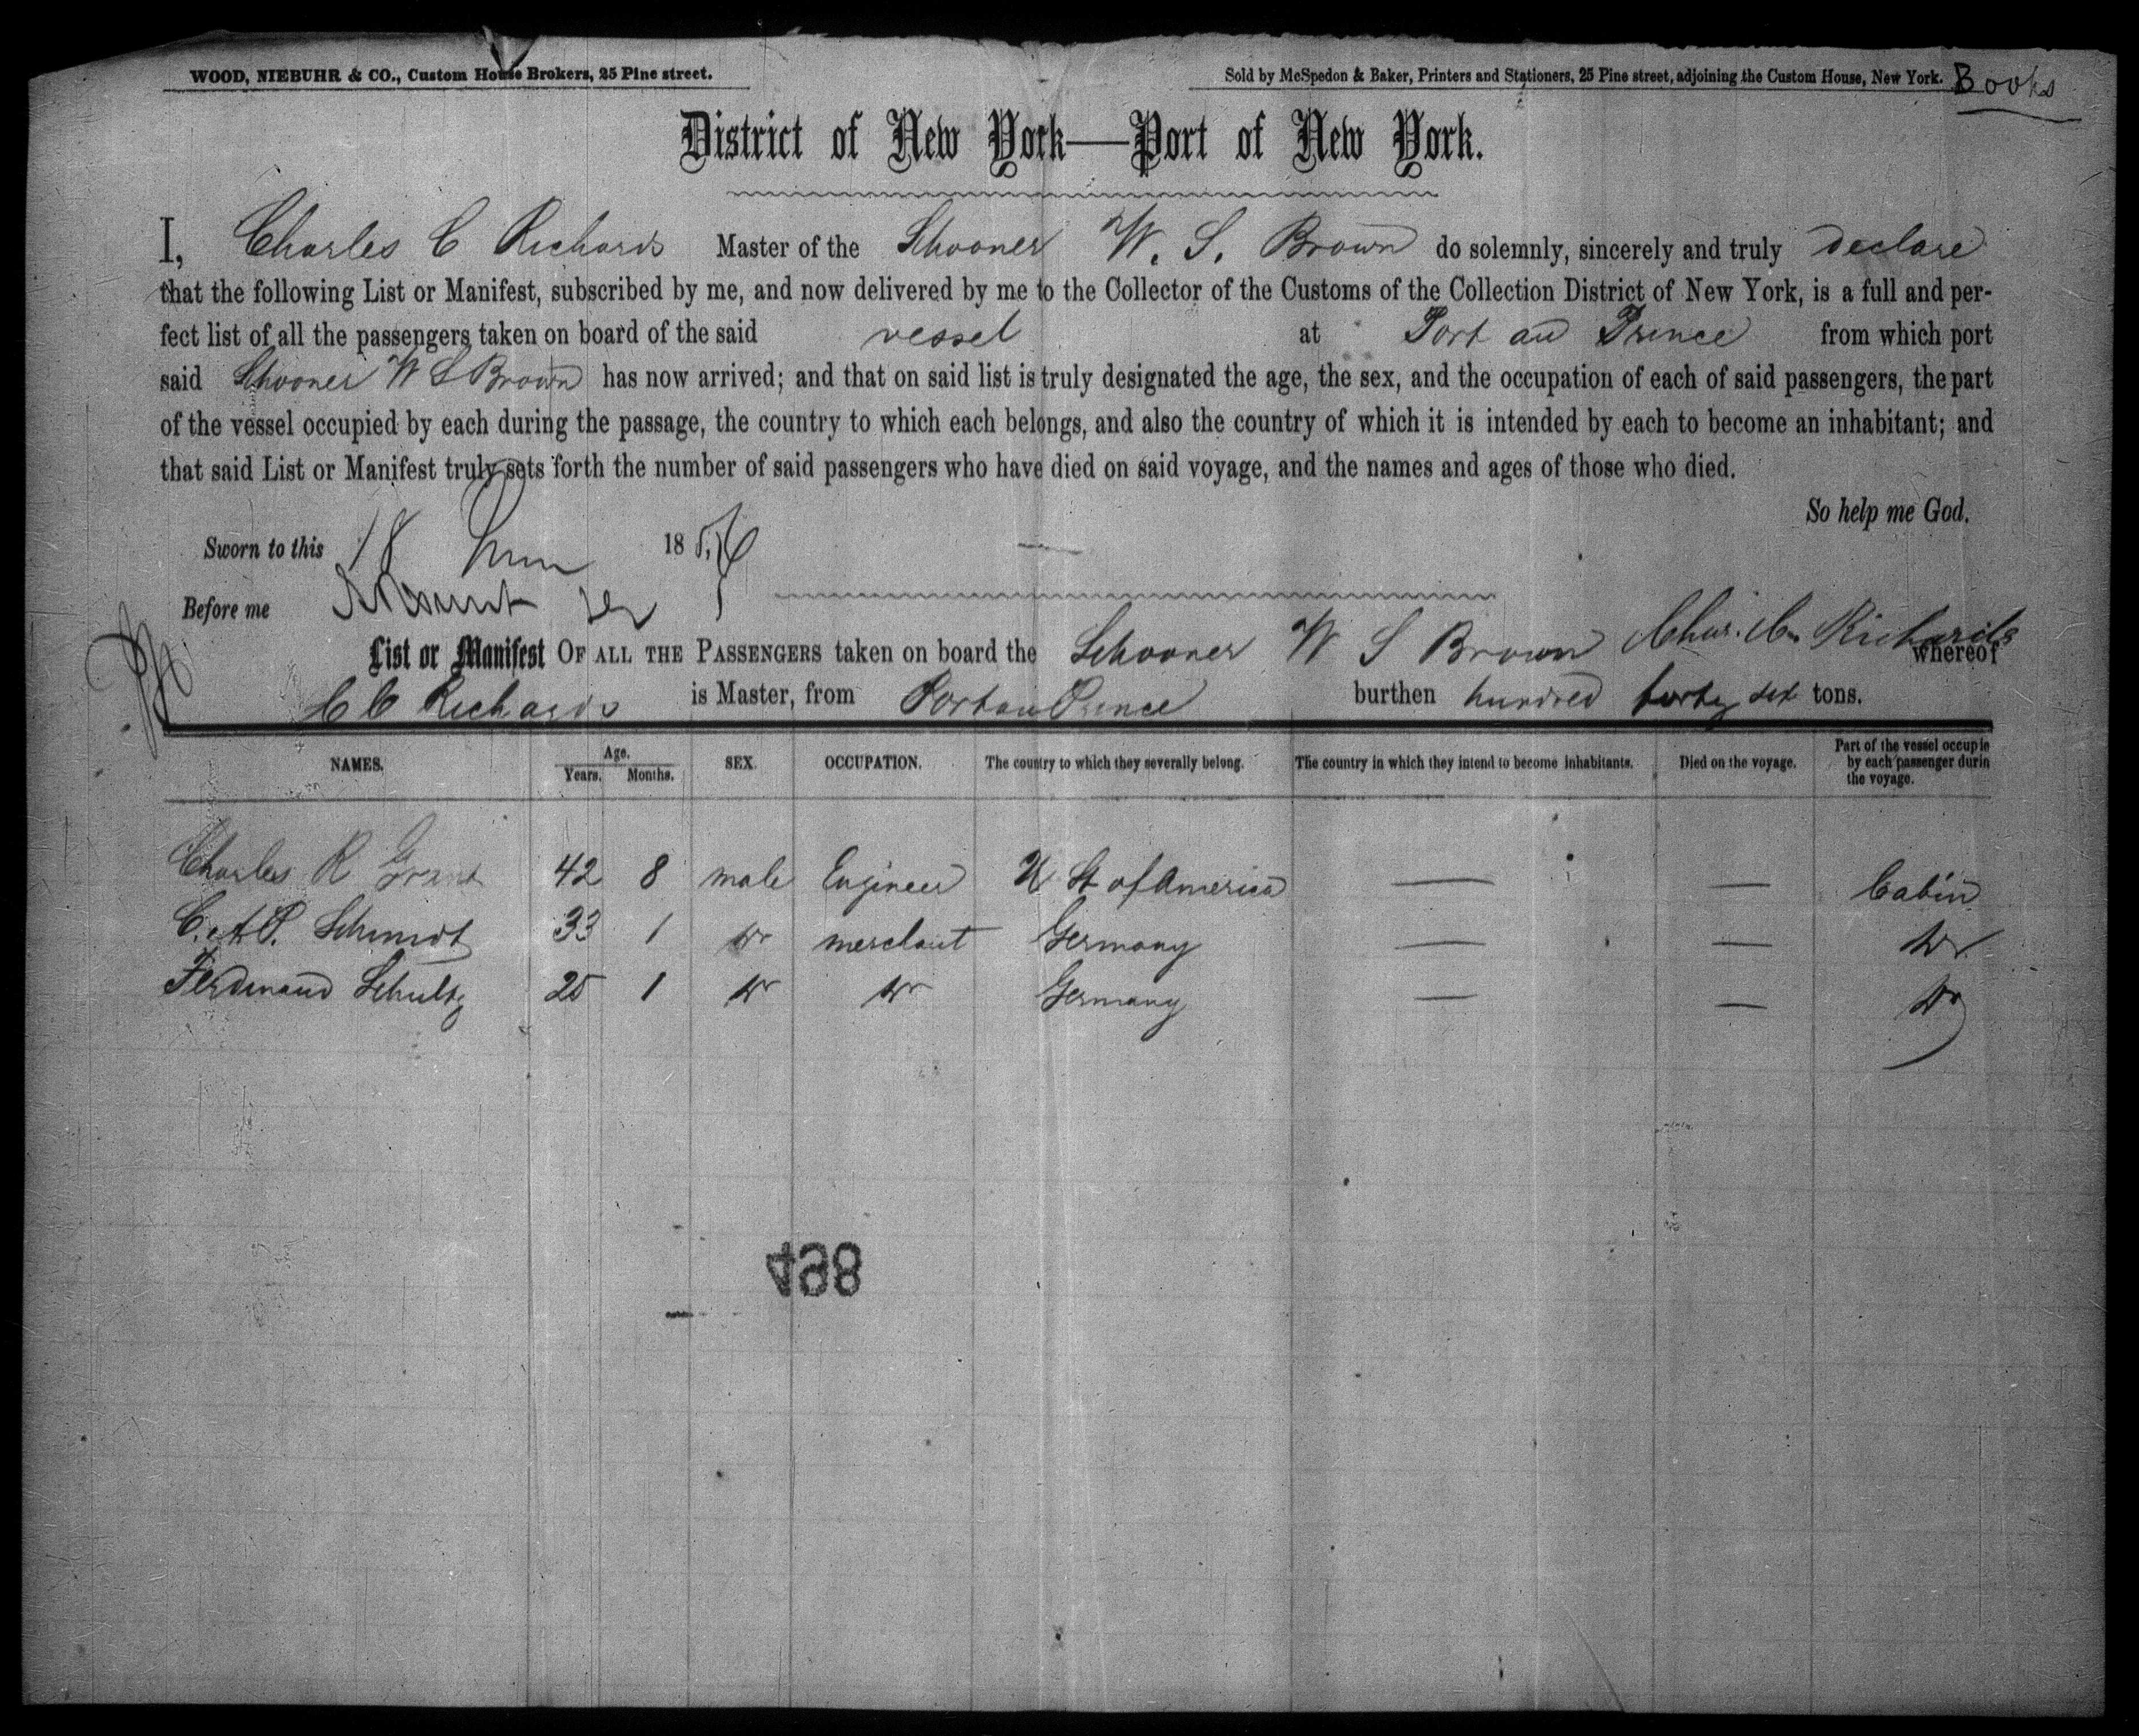 WOOD, NIEBUHR & CO., Custom House Brokers, 25 Pine street.
Sold by McSpedon & Baker, Printers and Stationers, 25 Pine street, adjoining the Custom House, New York.
Books
District of New York—Port of New York.
I, Charles C Richards Master of the Schooner W. S. Brown do solemnly, sincerely and truly declare
that the following List or Manifest, subscribed by me, and now delivered by me to the Collector of the Customs of the Collection District of New York, is a full and per-
fect list of all the passengers taken on board of the said vessel at Port au Prince from which port
said Schooner W S Brown has now arrived; and that on said list is truly designated the age, the sex, and the occupation of each of said passengers, the part
of the vessel occupied by each during the passage, the country to which each belongs, and also the country of which it is intended by each to become an inhabitant; and
that said List or Manifest truly sets forth the number of said passengers who have died on said voyage, and the names and ages of those who died.
So help me God.
Sworn to this 18 18 56
Before me
Chas. C. Richards
List or Manifest OF ALL THE PASSENGERS taken on board the Schooner W S Brown whereof
C C Richards is Master, from Port au Prince burthen hundred forty six tons.
NAMES. Age. Years. Months. SEX. OCCUPATION. The country to which they severally belong. The country in which they intend to become inhabitants. Died on the voyage. Part of the vessel occupie by each passenger durin the voyage.
Charles R Grant 42 8 male Engineer U St of America — — Cabin
C. A. P. Schmidt 33 1 Do merchant Germany — — Do
Ferdinand Schultz 25 1 Do Do Germany — — Do
498